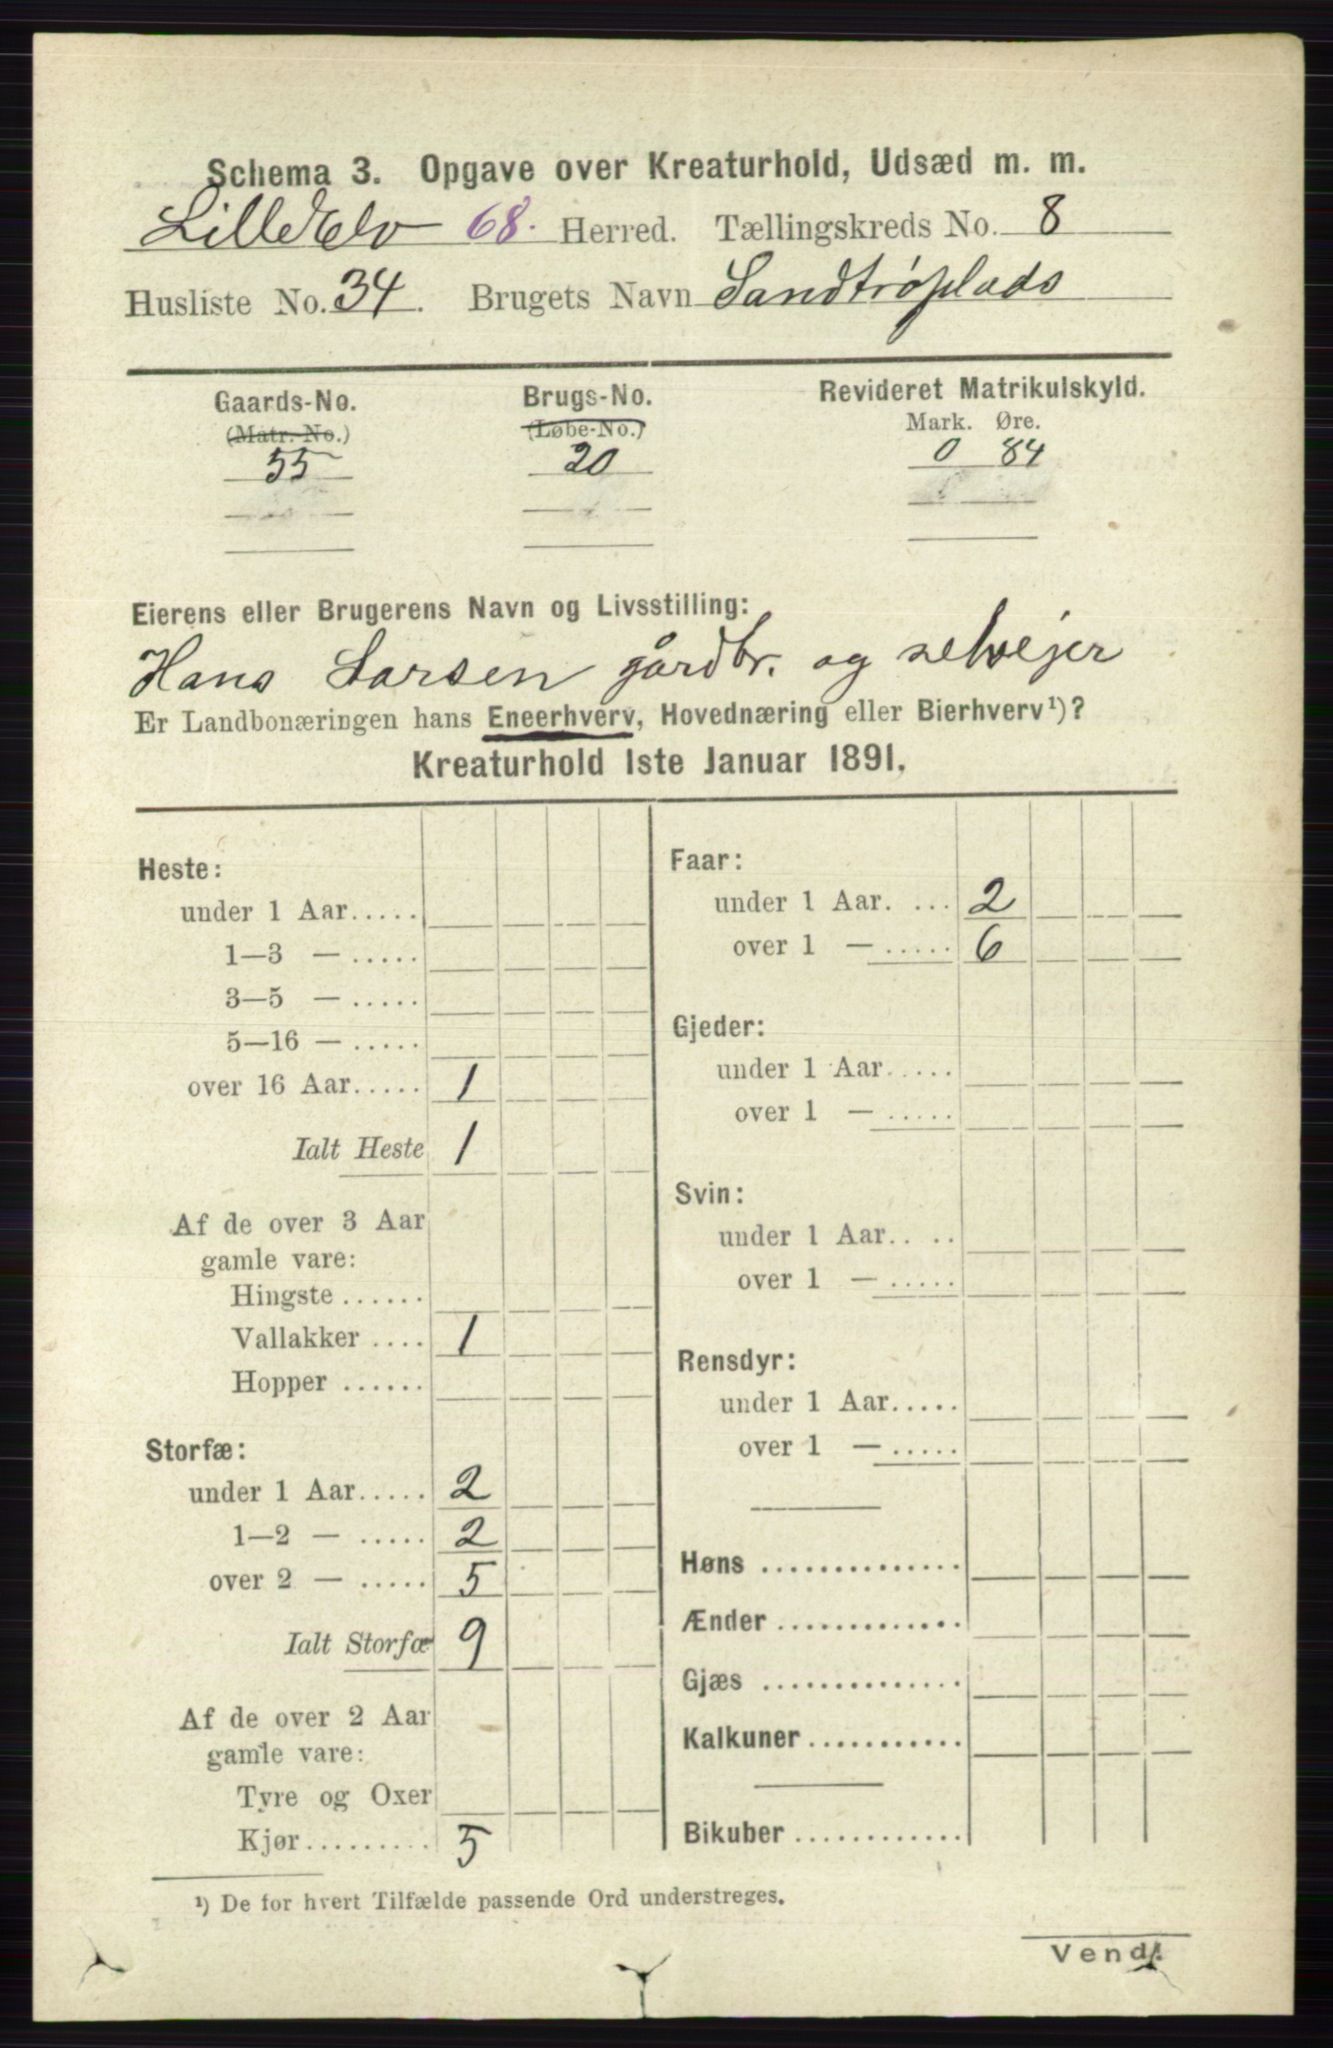 Schema 3. Opgave over Kreaturhold, Udsæd m. m.
Lilleelv 68. Herred. Tællingskreds No. 8
Husliste No. 34. Brugets Navn Sandtrøplads
Gaards-No. Brugs-No. Revideret Matrikulskyld.
(Matr.-No.) (Løbe-No.) Mark. Øre.
55 20 0 84
Eierens eller Brugerens Navn og Livsstilling:
Hans Larsen gårdbr. og selvejer
Er Landbonæringen hans Eneerhverv, Hovednæring eller Bierhverv¹)?
Kreaturhold 1ste Januar 1891.
Heste:
under 1 Aar.....
1—3 — .....
3—5 — .....
5—16 — .....
over 16 Aar..... 1
Ialt Heste 1
Af de over 3 Aar
gamle vare:
Hingste ......
Vallakker .... 1
Hopper ......
Storfæ:
under 1 Aar..... 2
1—2 — ..... 2
over 2 — ..... 5
Ialt Storfæ 9
Af de over 2 Aar
gamle vare:
Tyre og Oxer
Kjør......... 5
Faar:
under 1 Aar. ... 2
over 1 — ..... 6
Gjeder:
under 1 Aar.....
over 1 — .....
Svin:
under 1 Aar.. ..
over 1 — .....
Rensdyr:
under 1 Aar.....
over 1 — .....
Høns ..............
Ænder .............
Gjæs ..............
Kalkuner ...........
Bikuber ............
¹) De for hvert Tilfælde passende Ord understreges.
Vend!